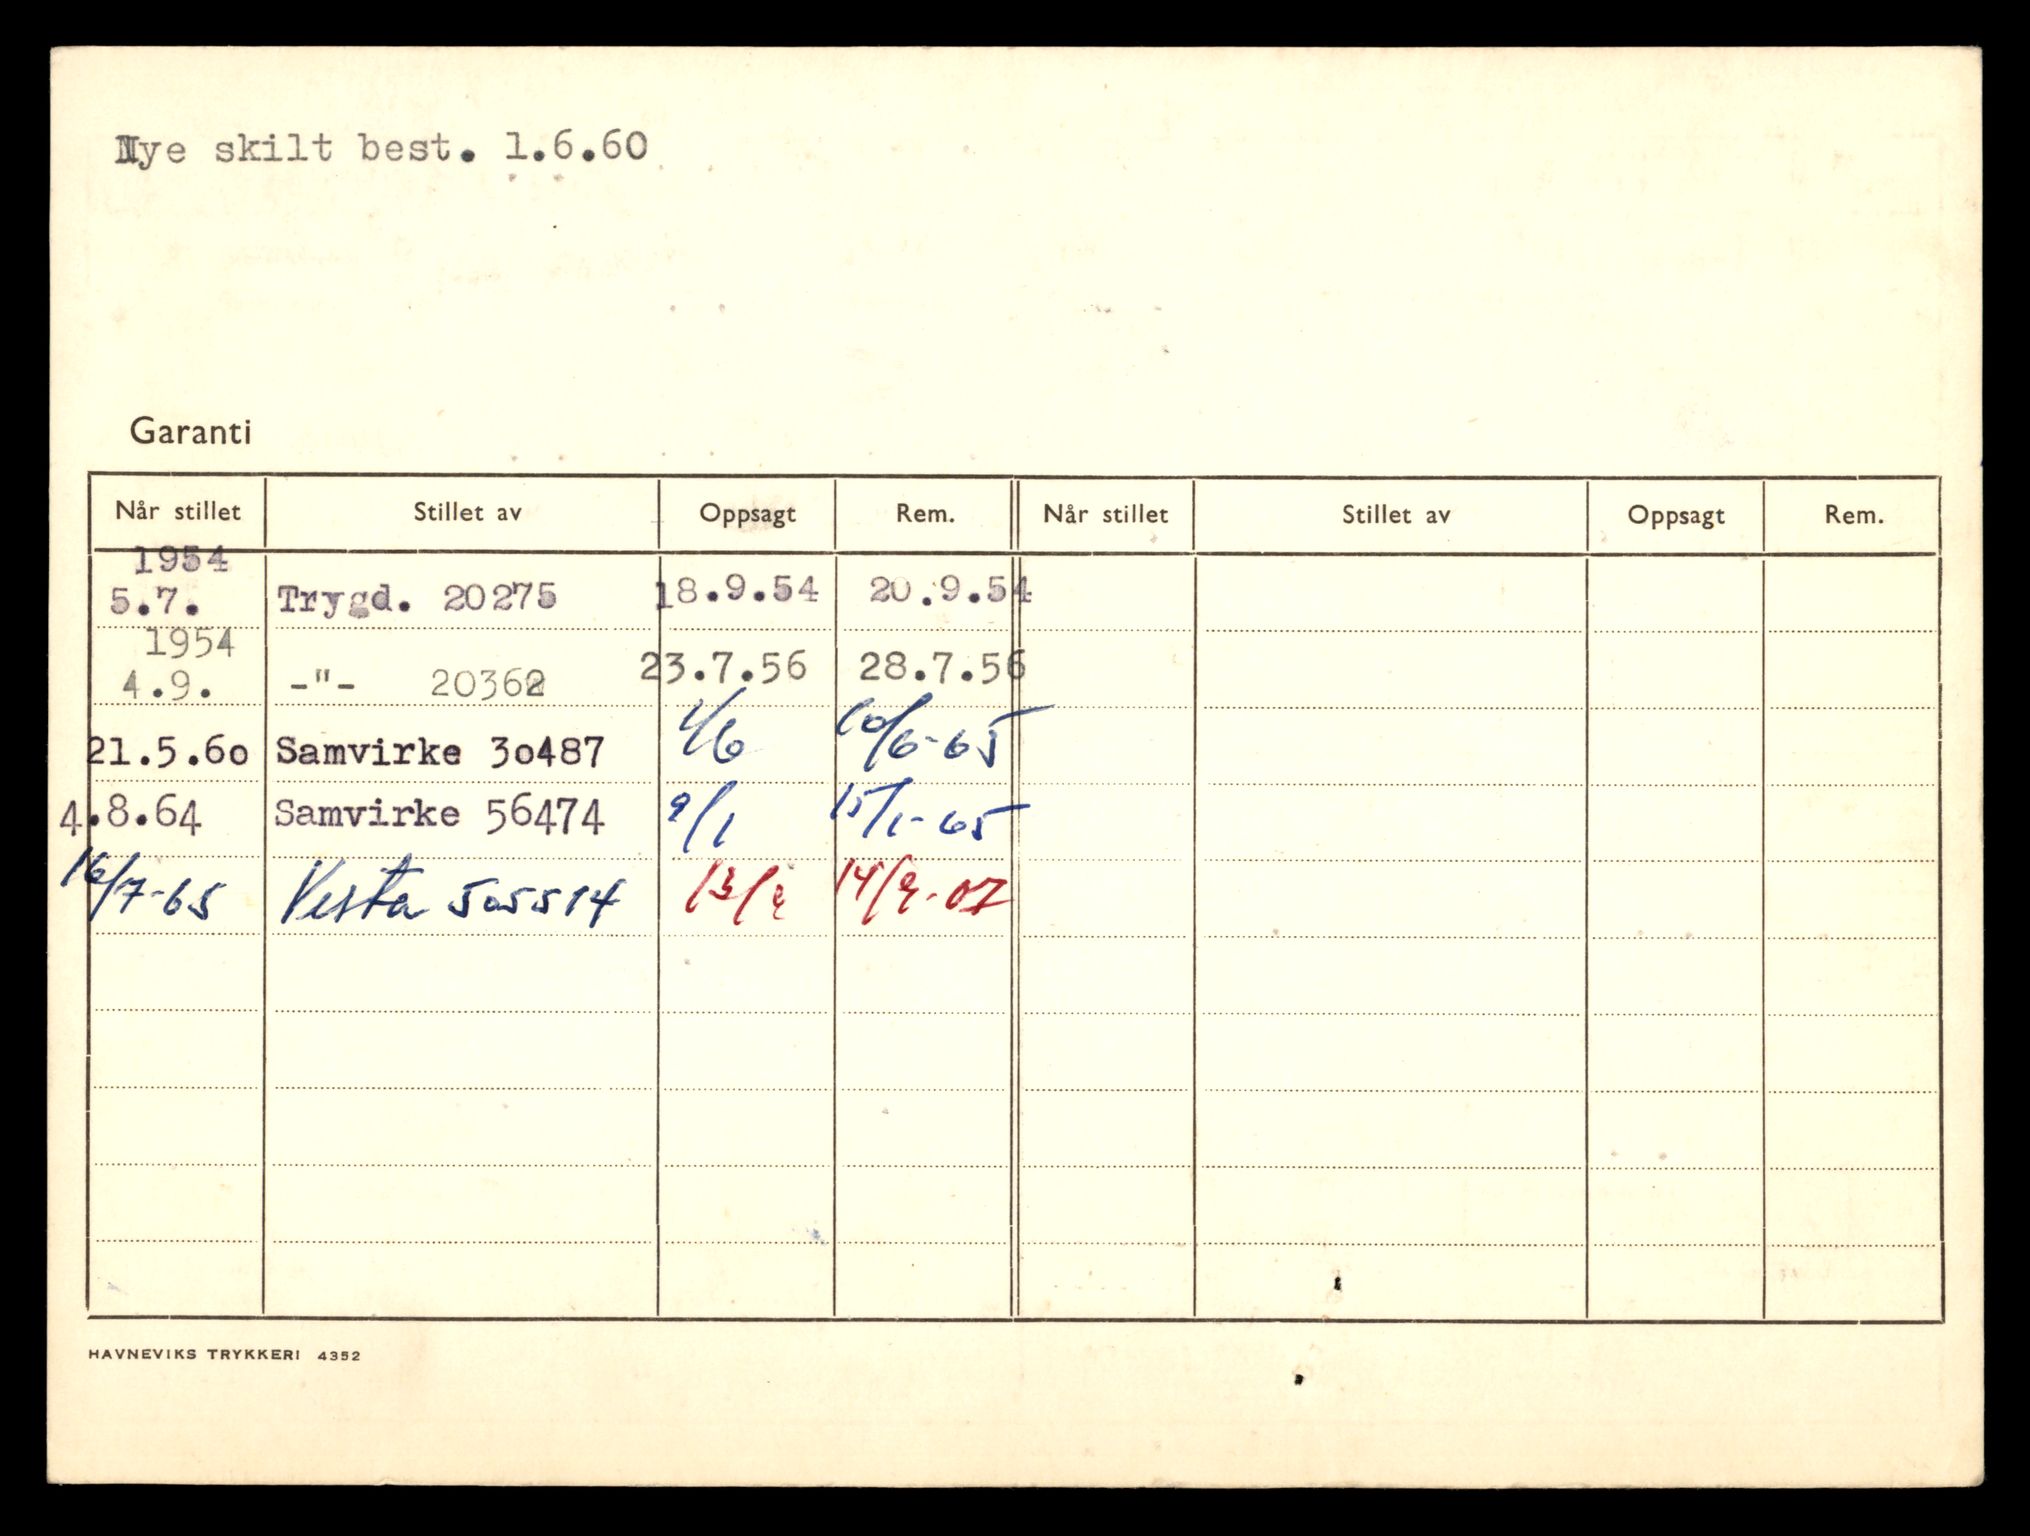 Nye skilt best. 1.6.60
Garanti
Når stillet Stillet av Oppsagt Rem. Når stillet Stillet av Oppsagt Rem.
1954
5.7. Trygd. 20275 18.9.54 20.9.54
1954
4.9. -"- 20362 23.7.56 28.7.56
21.5.60 Samvirke 30487 1/6 10/6-65
4.8.64 Samvirke 56474 9/1 15/1-65
16/7-65 Vesta 505514 13/9 14/9-07
HAVNEVIKS TRYKKERI 4352